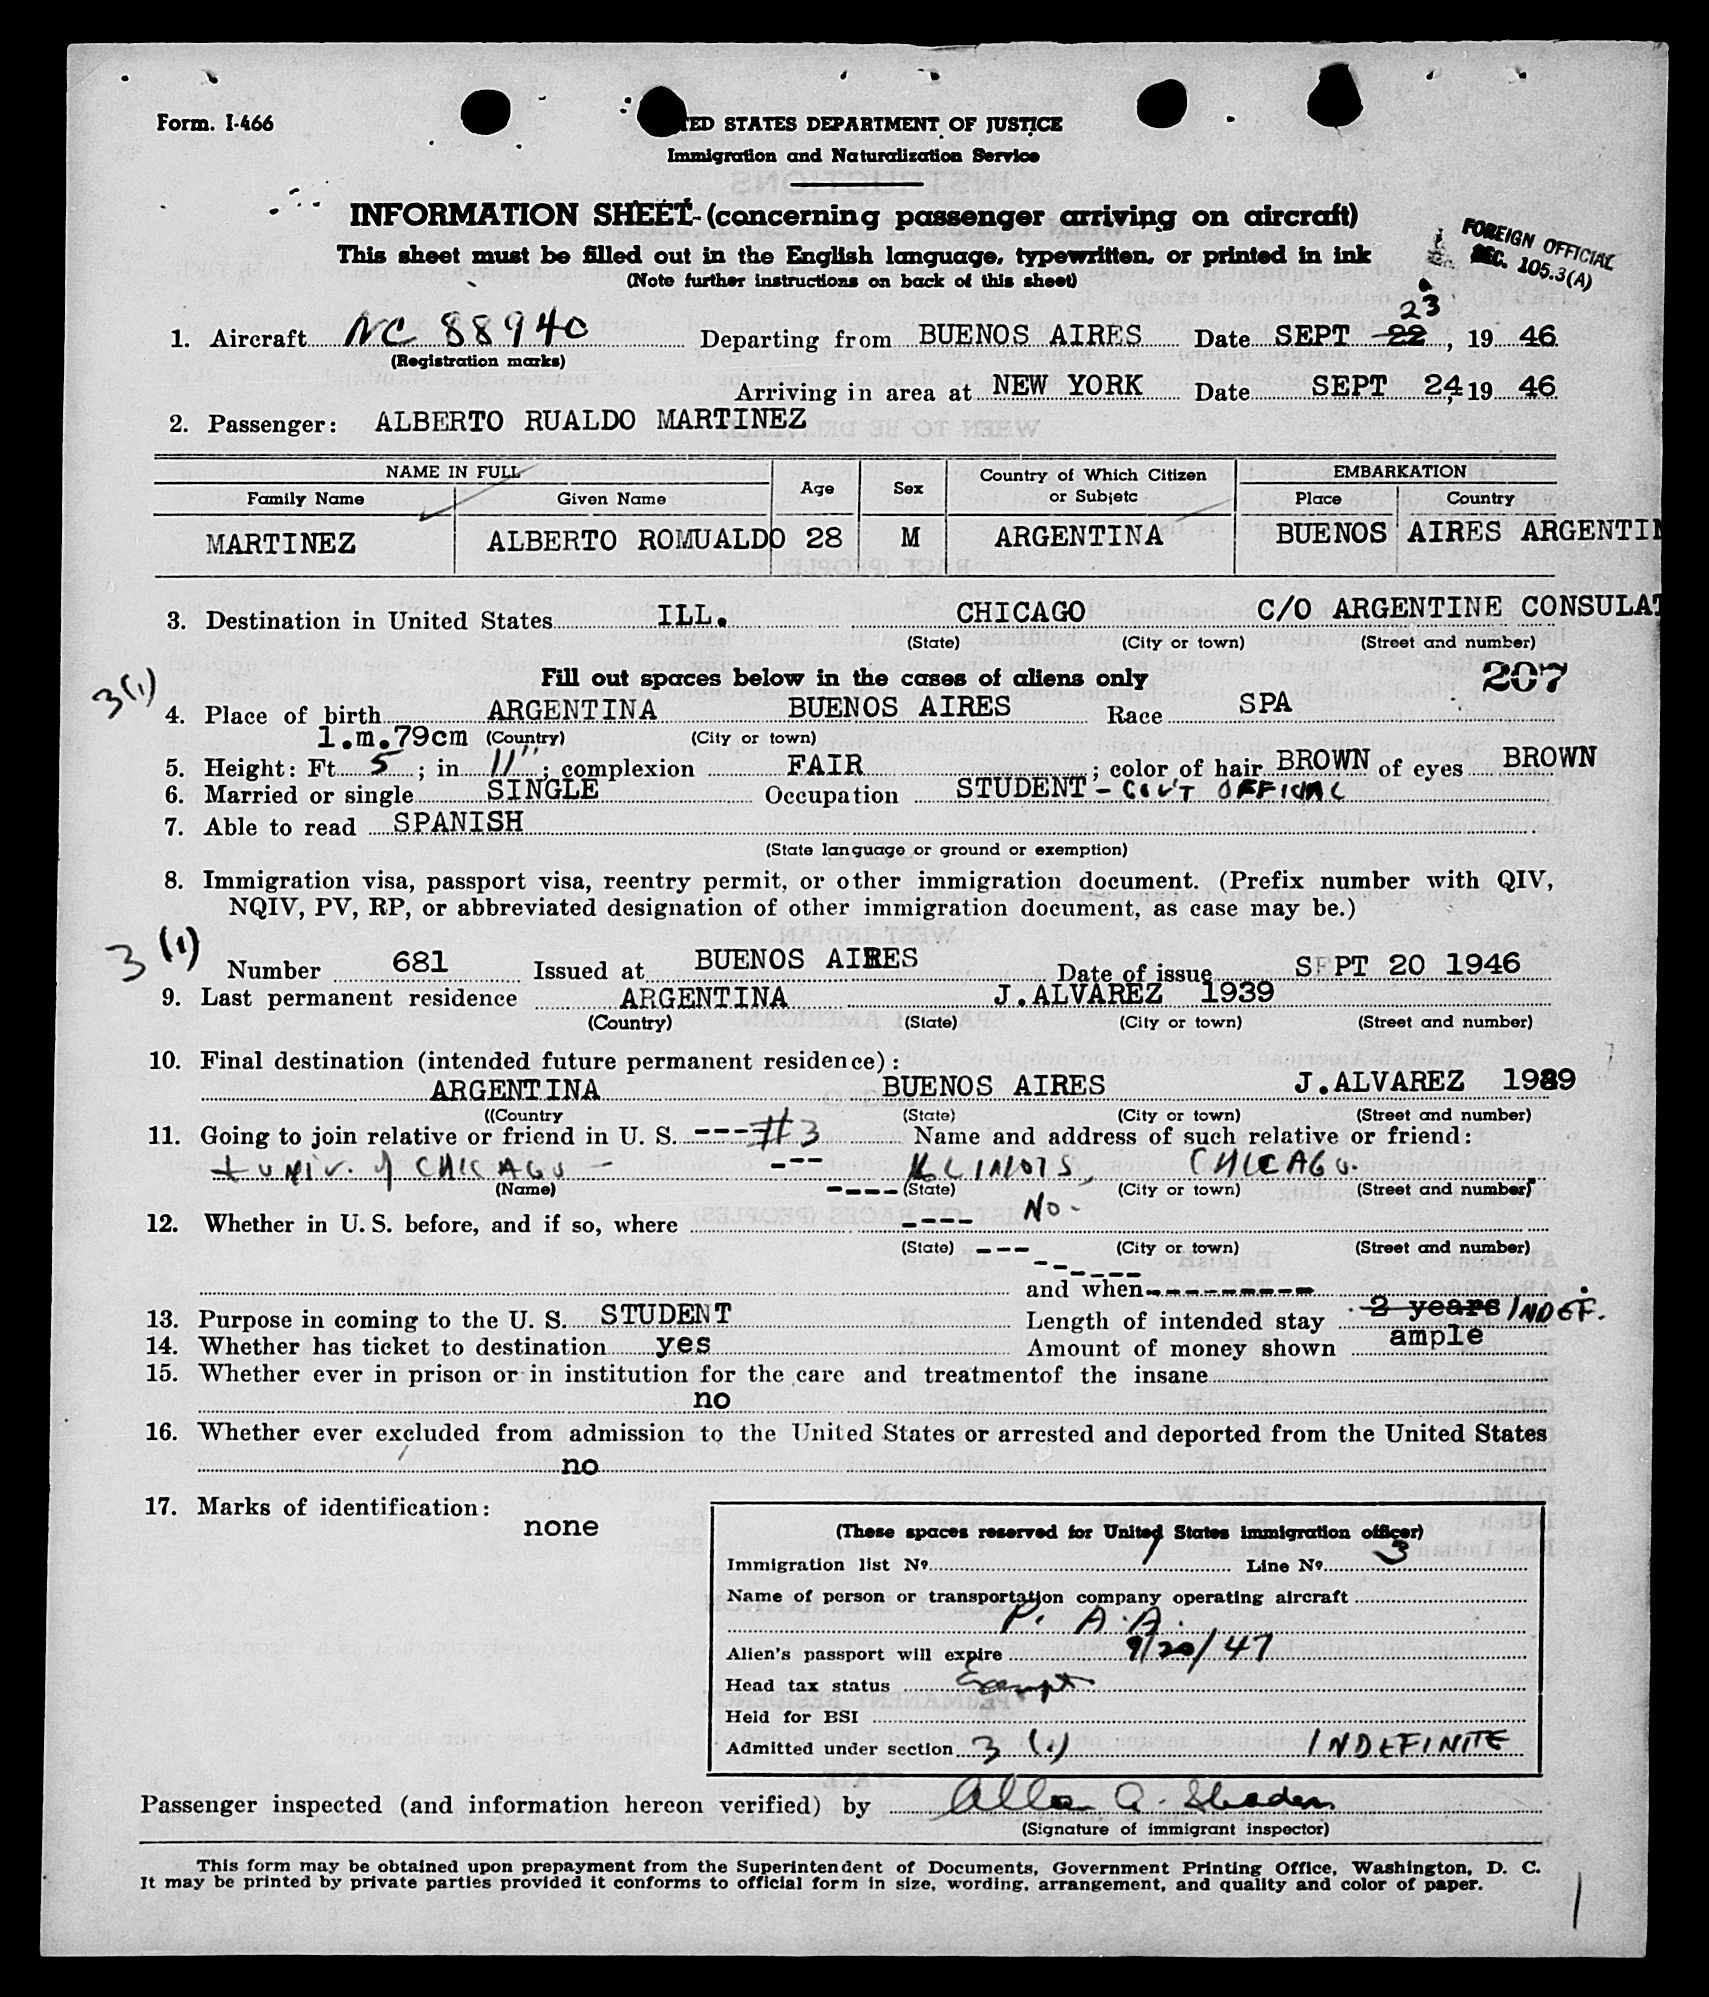 Form. I-466
ED STATES DEPARTMENT OF JUSTICE
Immigration and Naturalization Service
INFORMATION SHEET (concerning passenger arriving on aircraft)
This sheet must be filled out in the English language, typewritten, or printed in ink
(Note further instructions on back of this sheet)
FOREIGN OFFICIAL
SEC. 105.3(A)
23
1. Aircraft NC 88940 Departing from BUENOS AIRES Date SEPT 22, 19 46
(Registration marks)
Arriving in area at NEW YORK Date SEPT 24, 19 46
2. Passenger: ALBERTO RUALDO MARTINEZ
NAME IN FULL Age Sex Country of Which Citizen or Subjetc EMBARKATION
Family Name Given Name Place Country
MARTINEZ ALBERTO ROMUALDO 28 M ARGENTINA BUENOS AIRES ARGENTIN
3. Destination in United States ILL. CHICAGO C/O ARGENTINE CONSULAT
(State) (City or town) (Street and number)
Fill out spaces below in the cases of aliens only 207
3(1)
4. Place of birth ARGENTINA BUENOS AIRES Race SPA
1.m.79cm (Country) (City or town)
5. Height: Ft. 5 ; in. 11" ; complexion FAIR ; color of hair BROWN of eyes BROWN
6. Married or single SINGLE Occupation STUDENT - GOV'T OFFICIAL
7. Able to read SPANISH
(State language or ground or exemption)
8. Immigration visa, passport visa, reentry permit, or other immigration document. (Prefix number with QIV,
NQIV, PV, RP, or abbreviated designation of other immigration document, as case may be.)
3 (1)
Number 681 Issued at BUENOS AIRES Date of issue SEPT 20 1946
9. Last permanent residence ARGENTINA J.ALVAREZ 1939
(Country) (State) (City or town) (Street and number)
10. Final destination (intended future permanent residence):
ARGENTINA BUENOS AIRES J.ALVAREZ 1939
((Country (State) (City or town) (Street and number)
11. Going to join relative or friend in U. S. ---#3 Name and address of such relative or friend:
UNIV. of CHICAGO - --- ILLINOIS, CHICAGO.
(Name) ---- (State) (City or town) (Street and number)
12. Whether in U. S. before, and if so, where ---- No -
(State) --- (City or town) (Street and number)
and when ---------
13. Purpose in coming to the U. S. STUDENT Length of intended stay 2 years INDEF.
14. Whether has ticket to destination yes Amount of money shown ample
15. Whether ever in prison or in institution for the care and treatmentof the insane
no
16. Whether ever excluded from admission to the United States or arrested and deported from the United States
no
17. Marks of identification:
none
(These spaces reserved for United States immigration officer)
Immigration list No. 1 Line No. 3
Name of person or transportation company operating aircraft
P. A.A.
Alien's passport will expire 9/20/47
Head tax status Exempt
Held for BSI
Admitted under section 3 (1) INDEFINITE
Passenger inspected (and information hereon verified) by Allan A.
(Signature of immigrant inspector)
This form may be obtained upon prepayment from the Superintendent of Documents, Government Printing Office, Washington, D. C.
It may be printed by private parties provided it conforms to official form in size, wording, arrangement, and quality and color of paper.
1